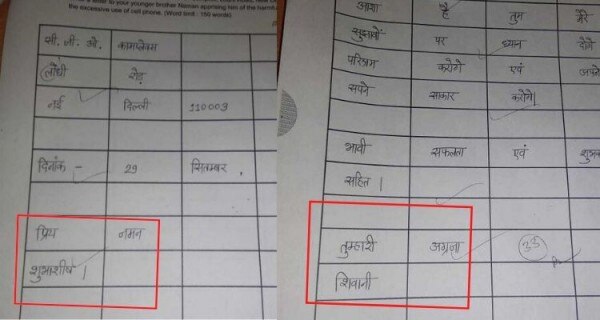 a letter to your younger brother Naman apprising him of the harmful
the excessive use of cell phone. (Word limit : 150 words)
सी. जी. ओ. काम्पलेक्स
लोधी रोड़
नई दिल्ली 110003
दिनांक - 29 सितम्बर,
प्रिय नमन
शुभाशीष।
आशा है तुम मेरे
सुझावों पर ध्यान दोगे
परिश्रम करोगे एवं अपने
सपने साकार करोगे।
भावी सफलता एवं
सहित।
तुम्हारी अग्रजा 33
शिवानी